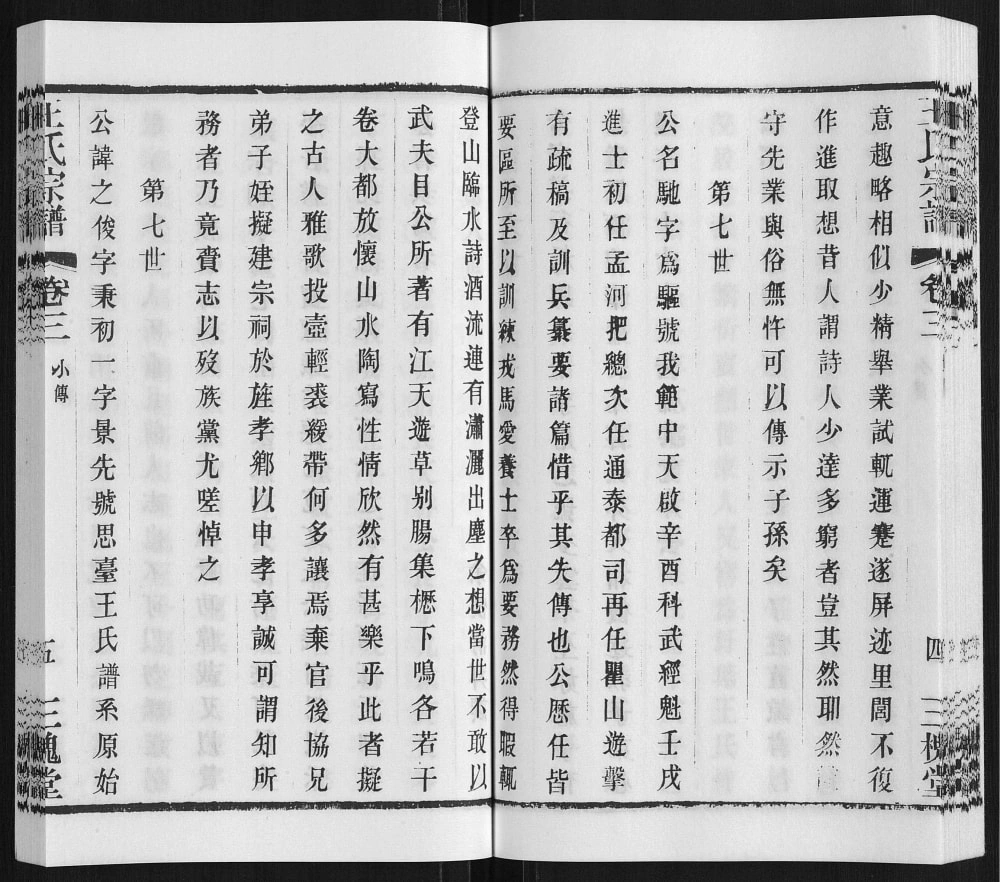 意趣略相似少精舉業試輒運蹇遂屏迹里閭不復
作進取想昔人謂詩人少達多窮者豈其然耶然
守先業與俗無忤可以傳示子孫矣
第七世
公名馳字為驅號我範中天啟辛酉科武經魁壬戌
進士初任孟河把總次任通泰都司再任瞿山遊擊
有疏稿及訓兵纂要諸篇惜乎其失傳也公歷任皆
要區所至以訓練戎馬愛養士卒為要務然得暇輒
登山臨水詩酒流連有瀟灑出塵之想當世不敢以
武夫目公所著有江天遊草别腸集櫪下鳴各若干
卷大都放懷山水陶寫性情欣然有甚樂乎此者擬
之古人雅歌投壺輕裘緩帶何多讓焉棄官後協兄
弟子姪擬建宗祠於旌孝鄉以申孝享誠可謂知所
務者乃竟賫志以歿族黨尤嗟悼之
第七世
公諱之俊字秉初一字景先號思臺王氏譜系原始
王氏宗譜
卷三
小傳
四
三槐堂
王氏宗譜
卷三
小傳
五
三槐堂